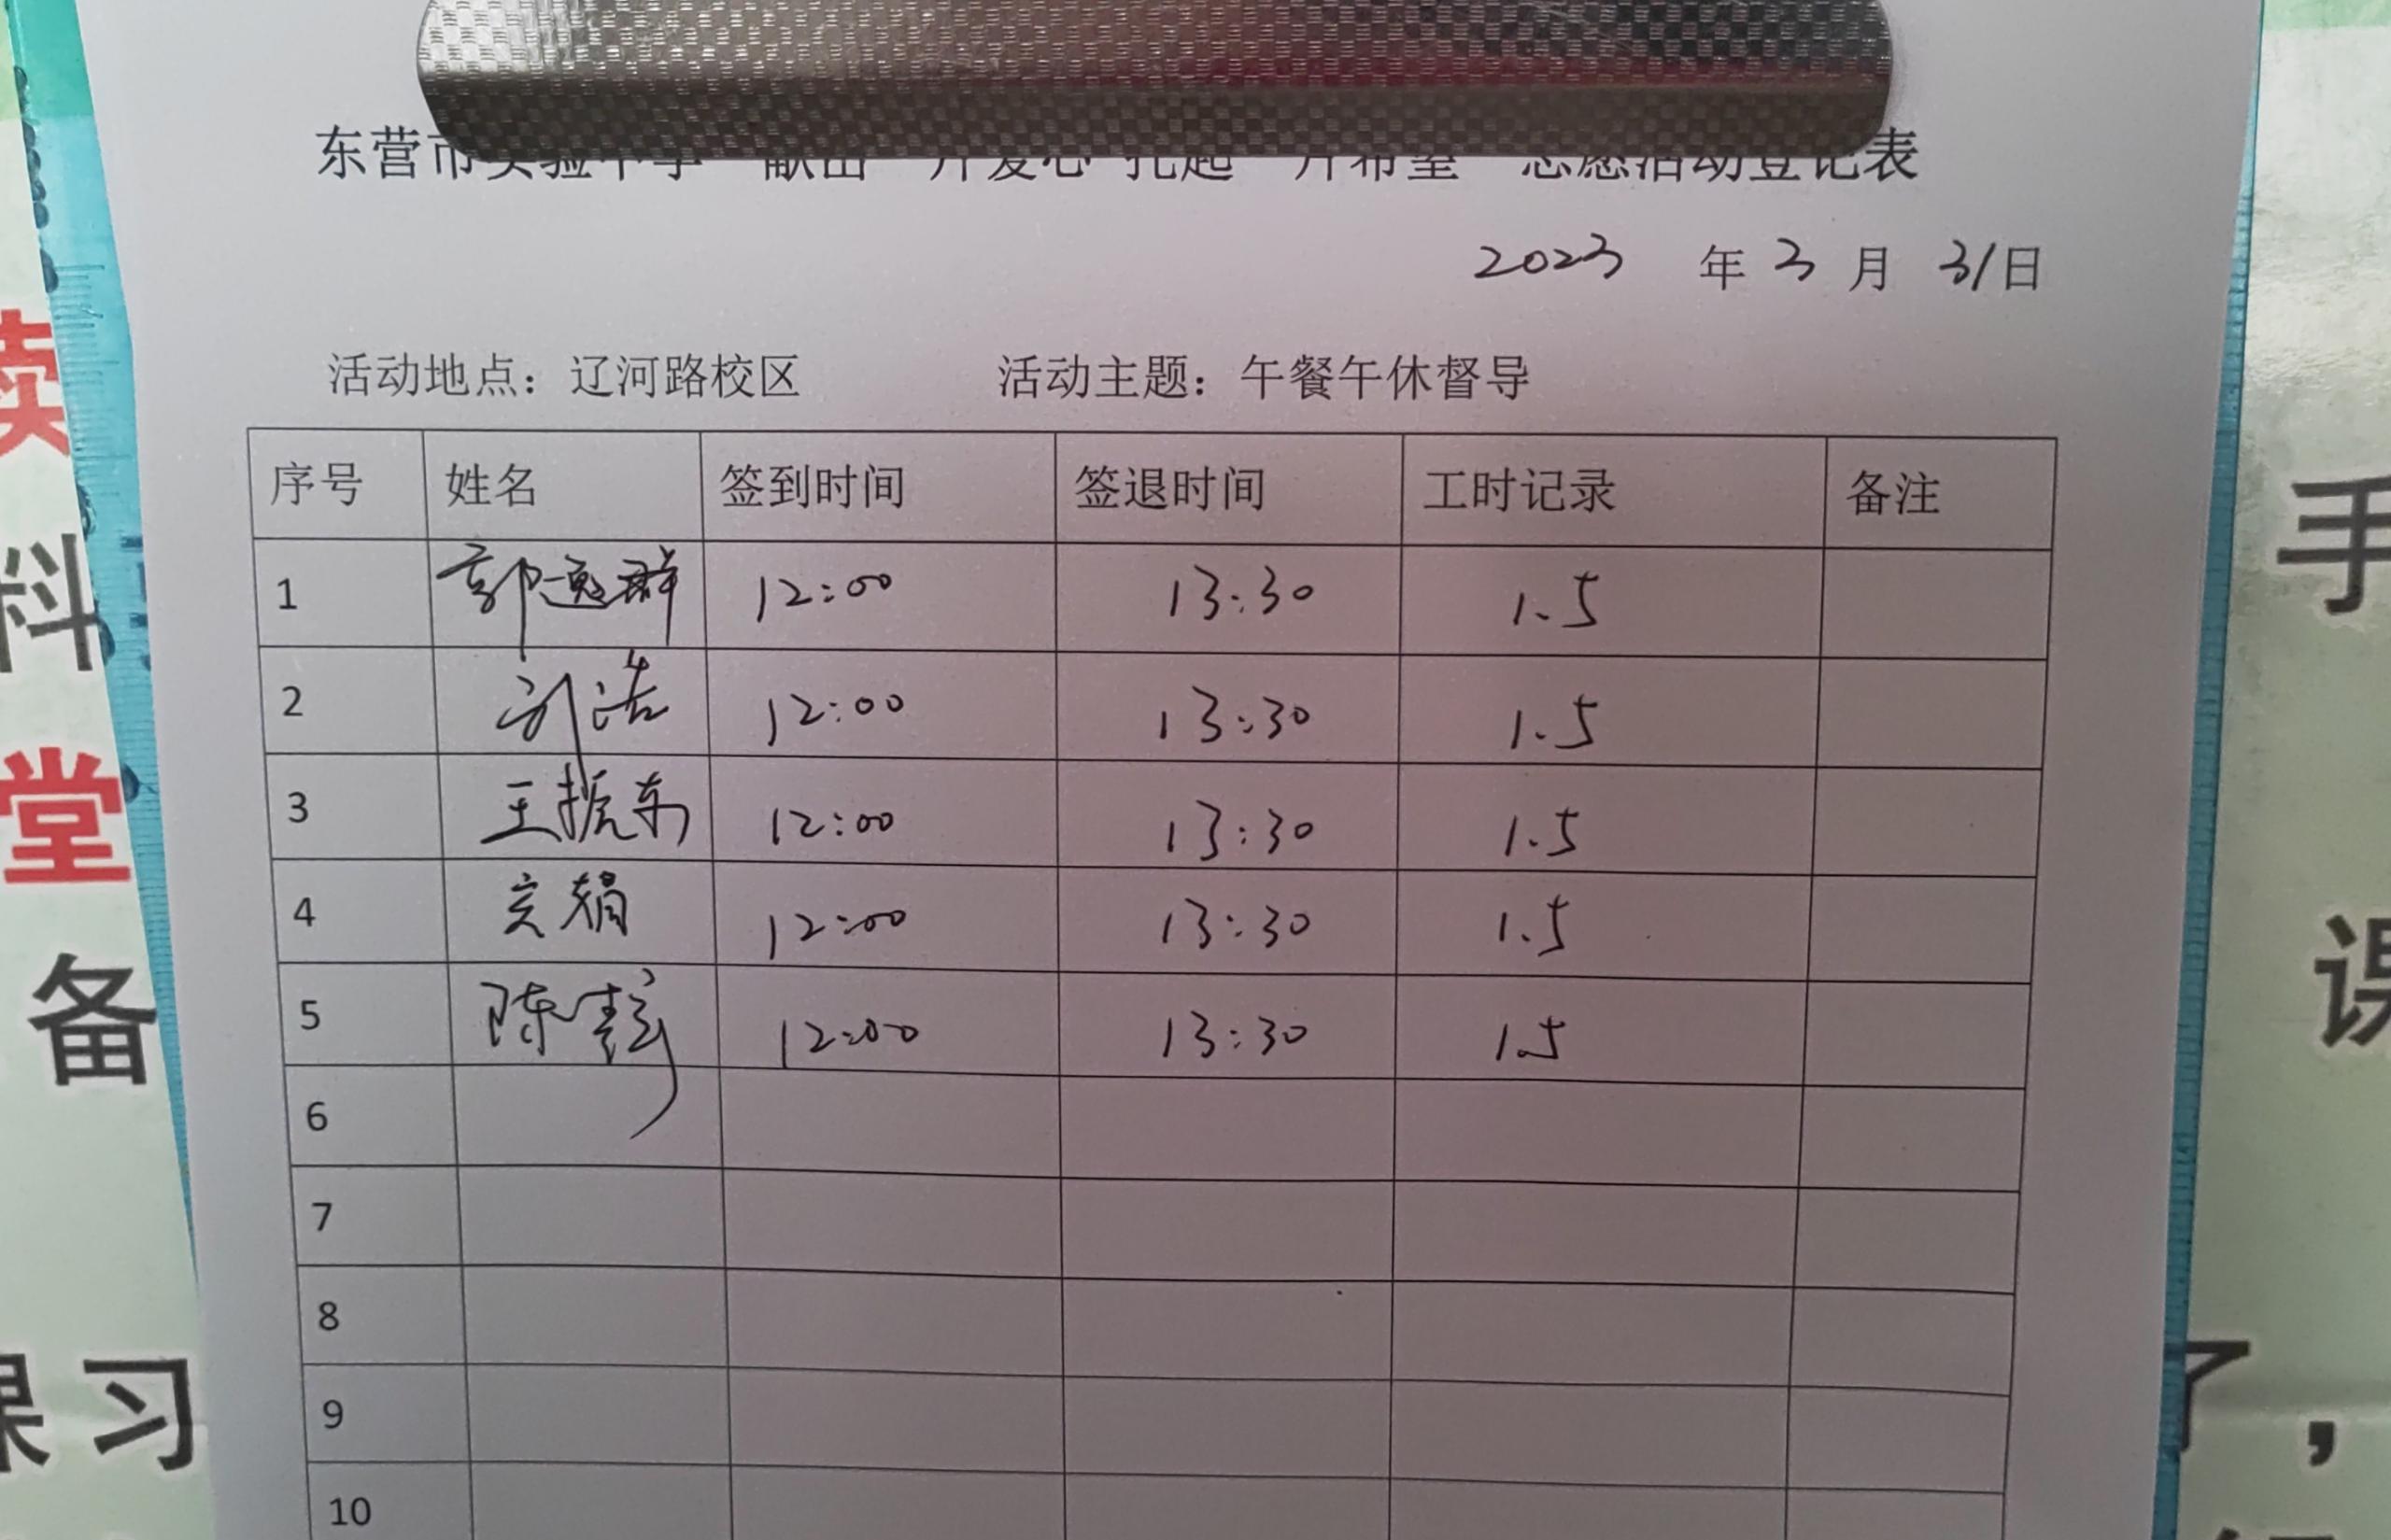 东营市实验中学 献出一片爱心 托起一片希望 志愿活动登记表
2023 年 3 月 31日
活动地点：辽河路校区 活动主题：午餐午休督导
序号 姓名 签到时间 签退时间 工时记录 备注
1 郭逸群 12:00 13:30 1.5
2 刘浩 12:00 13:30 1.5
3 王振东 12:00 13:30 1.5
4 12:00 13:30 1.5
5 陈 12:00 13:30 1.5
6
7
8
9
10
读
料
堂
备
课习
手
课
了，